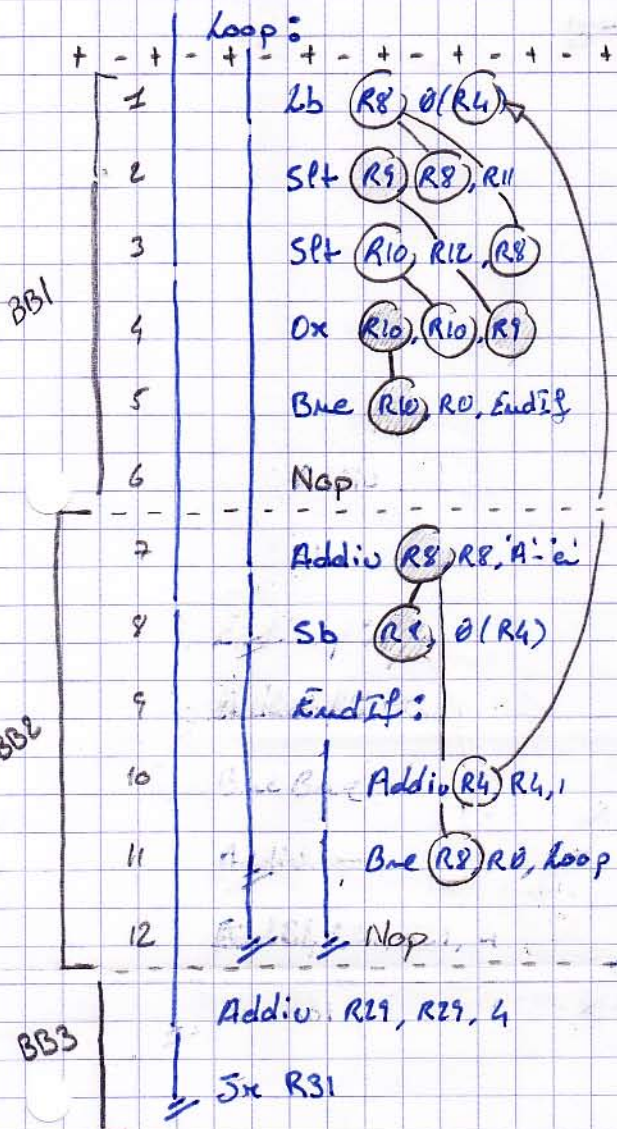 Loop:
+ - + - + - + - + - + - + - +
BB1
1 Lb R8 0(R4)
2 Slt R9, R8, R11
3 Slt R10, R12, R8
4 Or R10, R10, R9
5 Bne R10, R0, EndIf
6 Nop
BB2
7 Addiu R8, R8, 'A'-'a'
8 Sb R8, 0(R4)
9 EndIf:
10 Addiu R4, R4, 1
11 Bne R8, R0, Loop
12 Nop
BB3
Addiu R29, R29, 4
Jr R31